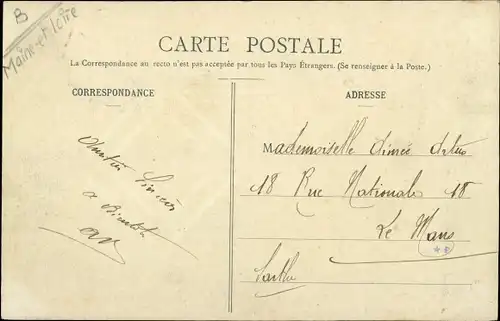 B
Maine et Loire
CARTE POSTALE
La Correspondance au recto n'est pas acceptée par tous les Pays Étrangers. (Se renseigner à la Poste.)
CORRESPONDANCE
ADRESSE
Mademoiselle
18 Rue Nationale 18
Le Mans
Sarthe
Sincère
a Bientôt